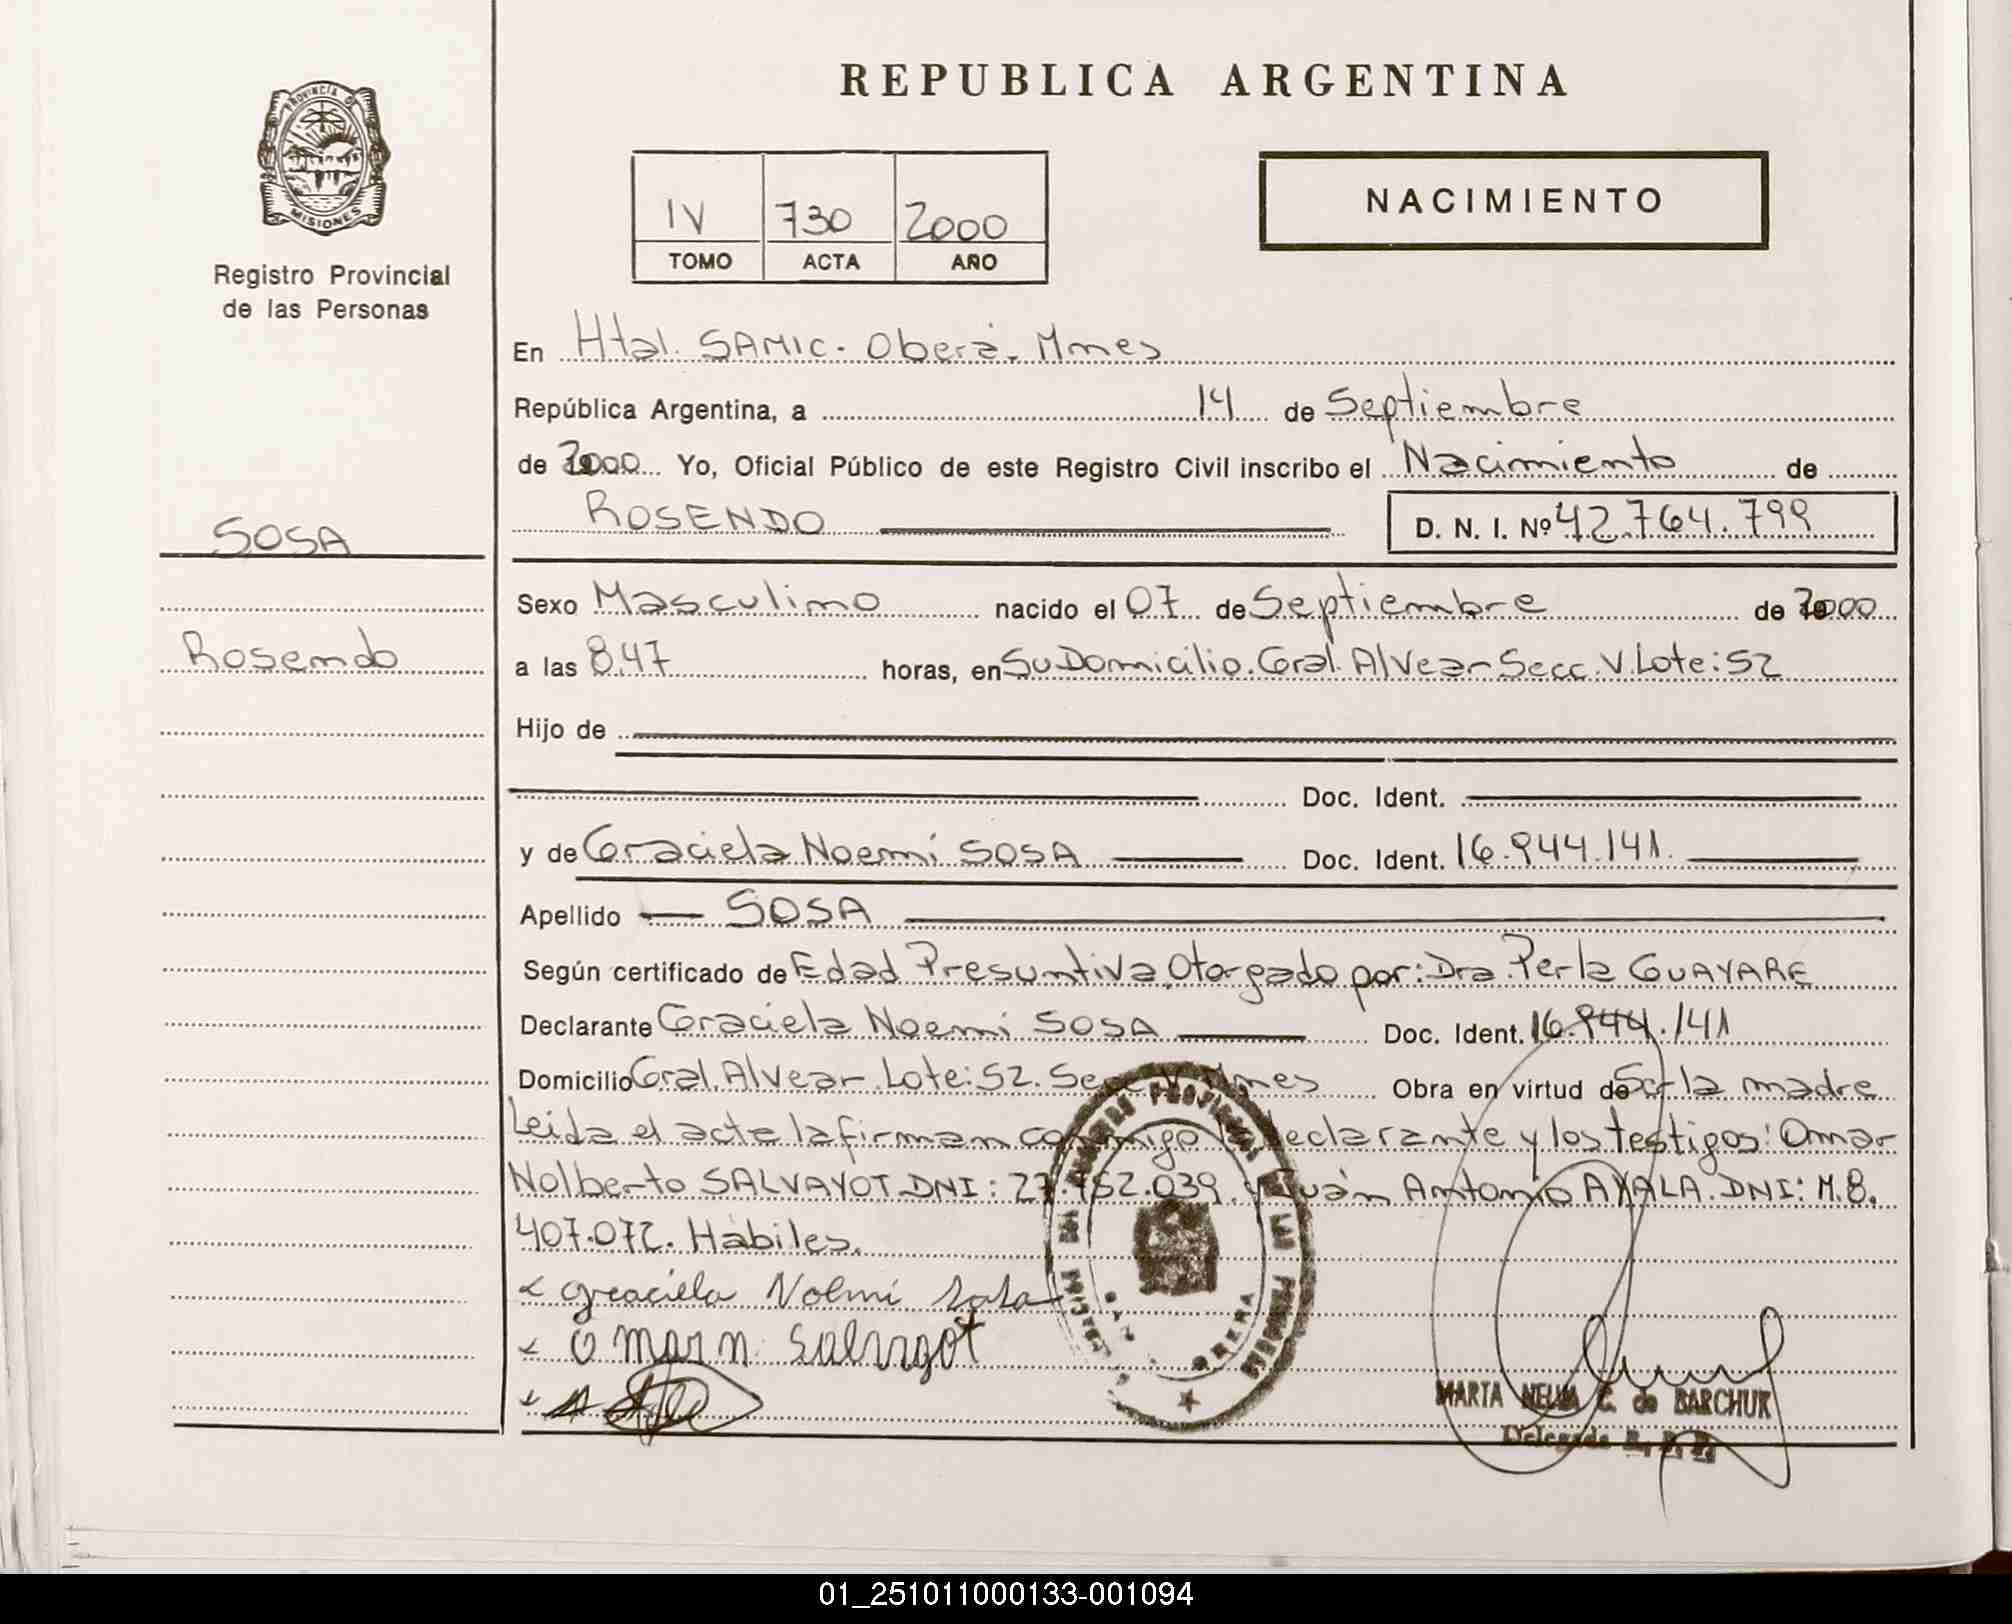 REPUBLICA ARGENTINA
PROVINCIA DE
MISIONES
Registro Provincial
de las Personas
IV 730 2000
TOMO ACTA AÑO
NACIMIENTO
En Htal. SAMIC. Oberá. Mnes
República Argentina, a 14 de Septiembre
de 2000 Yo, Oficial Público de este Registro Civil inscribo el Nacimiento de
ROSENDO D. N. I. Nº 42.764.799
SOSA
Rosendo
Sexo Masculino nacido el 07 de Septiembre de 2000
a las 8,47 horas, en Su Domicilio. Gral. Alvear Secc. V. Lote: 52
Hijo de
Doc. Ident.
y de Graciela Noemí SOSA Doc. Ident. 16.944.141.
Apellido SOSA
Según certificado de Edad Presuntiva Otorgado por: Dra. Perla GUAYARE
Declarante Graciela Noemí SOSA Doc. Ident. 16.944.141
Domicilio Gral. Alvear. Lote: 52. Mnes Obra en virtud de Ser la madre
Leida el acta la firman conmigo la declarante y los testigos: Omar
Nolberto SALVAYOT DNI: 27.752.039. y Juán Antonio AYALA. DNI: M.8.
407.072. Hábiles.
Graciela Noemí Sosa
Omar n.
OBERA
MARTA NELIDA C. de BARCHUK
Delegada R. P. P.
01_251011000133-001094